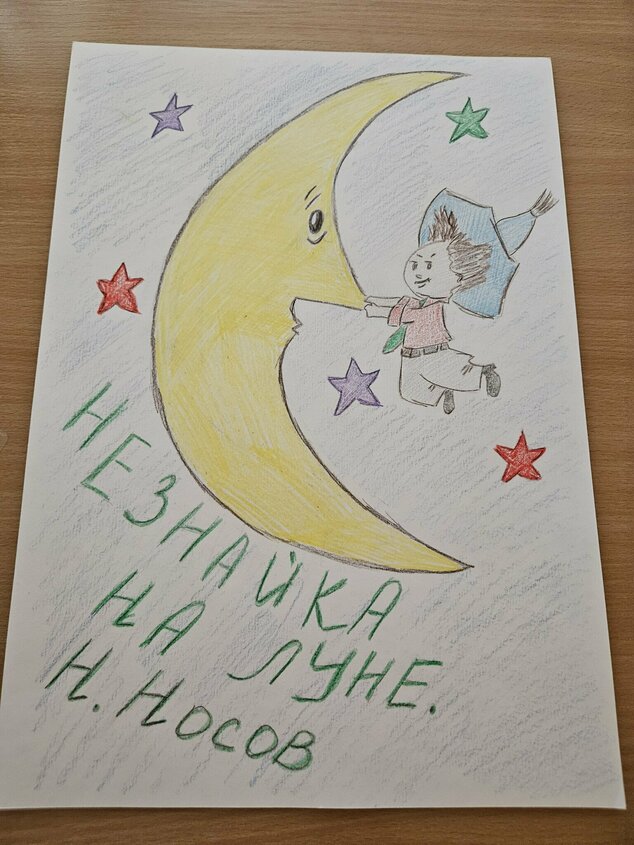 НЕЗНАЙКА
НА ЛУНЕ.
Н. Носов